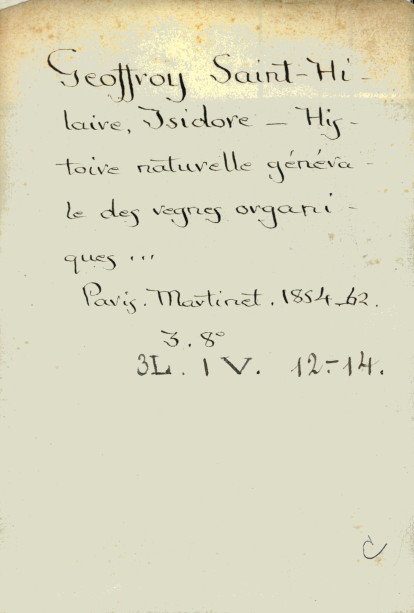 Geoffroy Saint-Hi-
laire, Isidore — His-
toire naturelle généra-
le des regnes organi-
ques ...
Paris. Martinet. 1854-62.
3. 8°
3L. I V. 12-14.
C